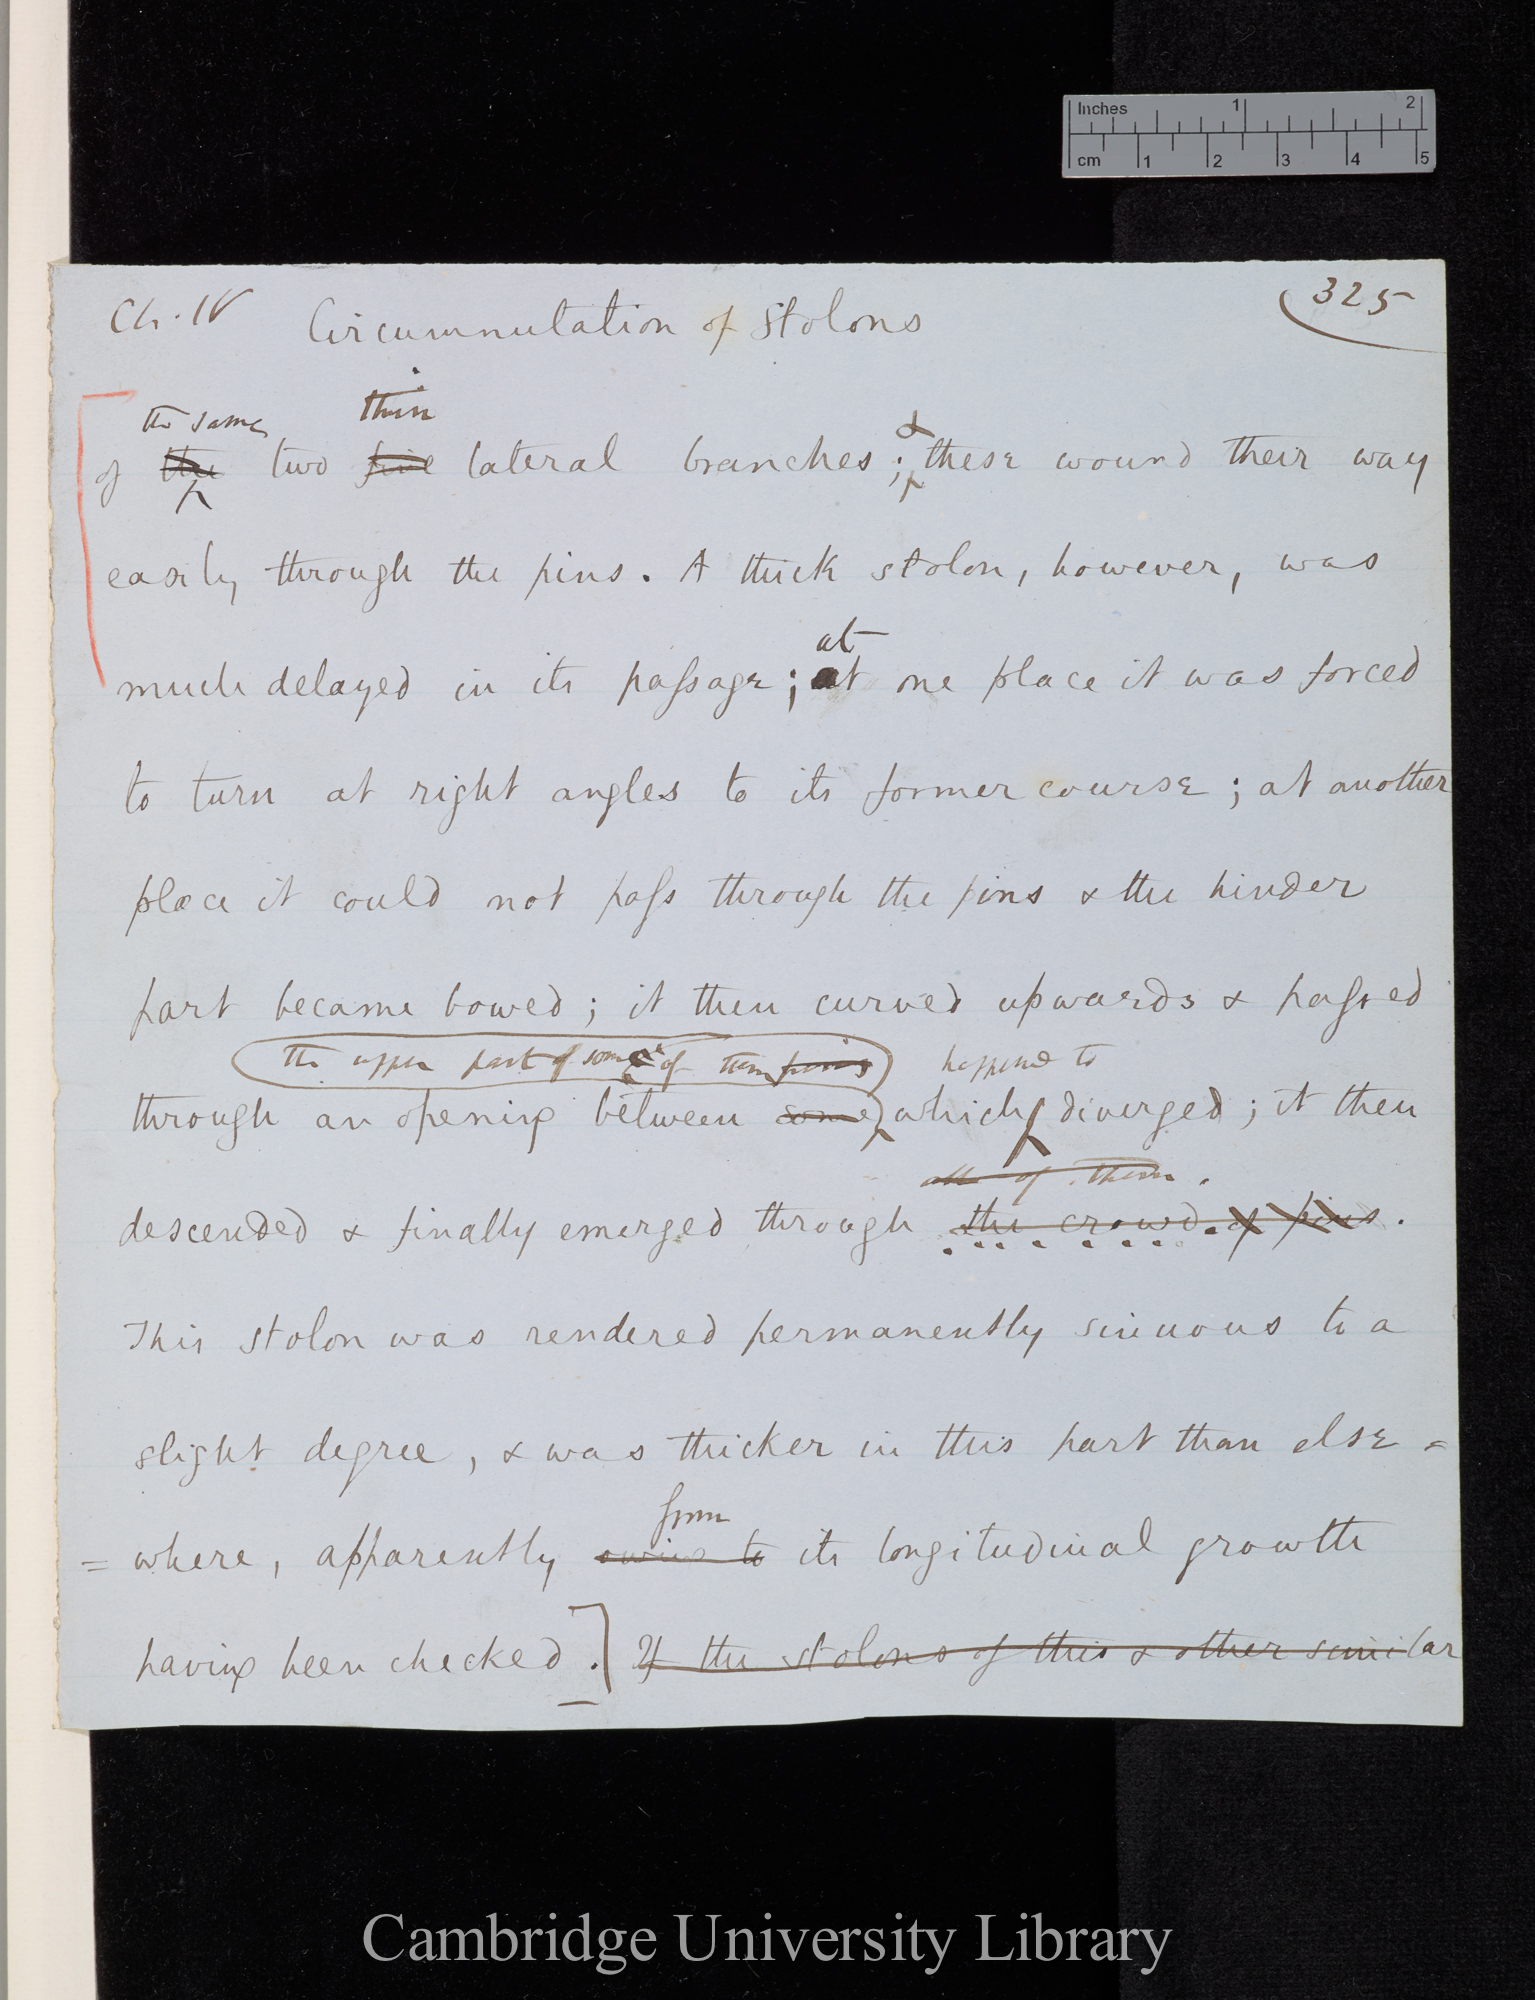 Inches 1 2
cm 1 2 3 4 5
Ch. IV Circumnutation of Stolons 325
the same thin
of the two fine lateral branches ; & these wound their way
easily through the pins. A thick stolon, however, was
at
much delayed in its passage ; at one place it was forced
to turn at right angles to its former course ; at another
place it could not pass through the pins & the hinder
part became bowed ; it then curved upwards & passed
the upper part of some of them pins happened to
through an opening between some which diverged ; it then
all of them.
descended & finally emerged through the crowd of pins.
This stolon was rendered permanently sinuous to a
slight degree, & was thicker in this part than else =
from
= where, apparently owing to its longitudinal growth
having been checked.] If the stolons of this & other similar
Cambridge University Library